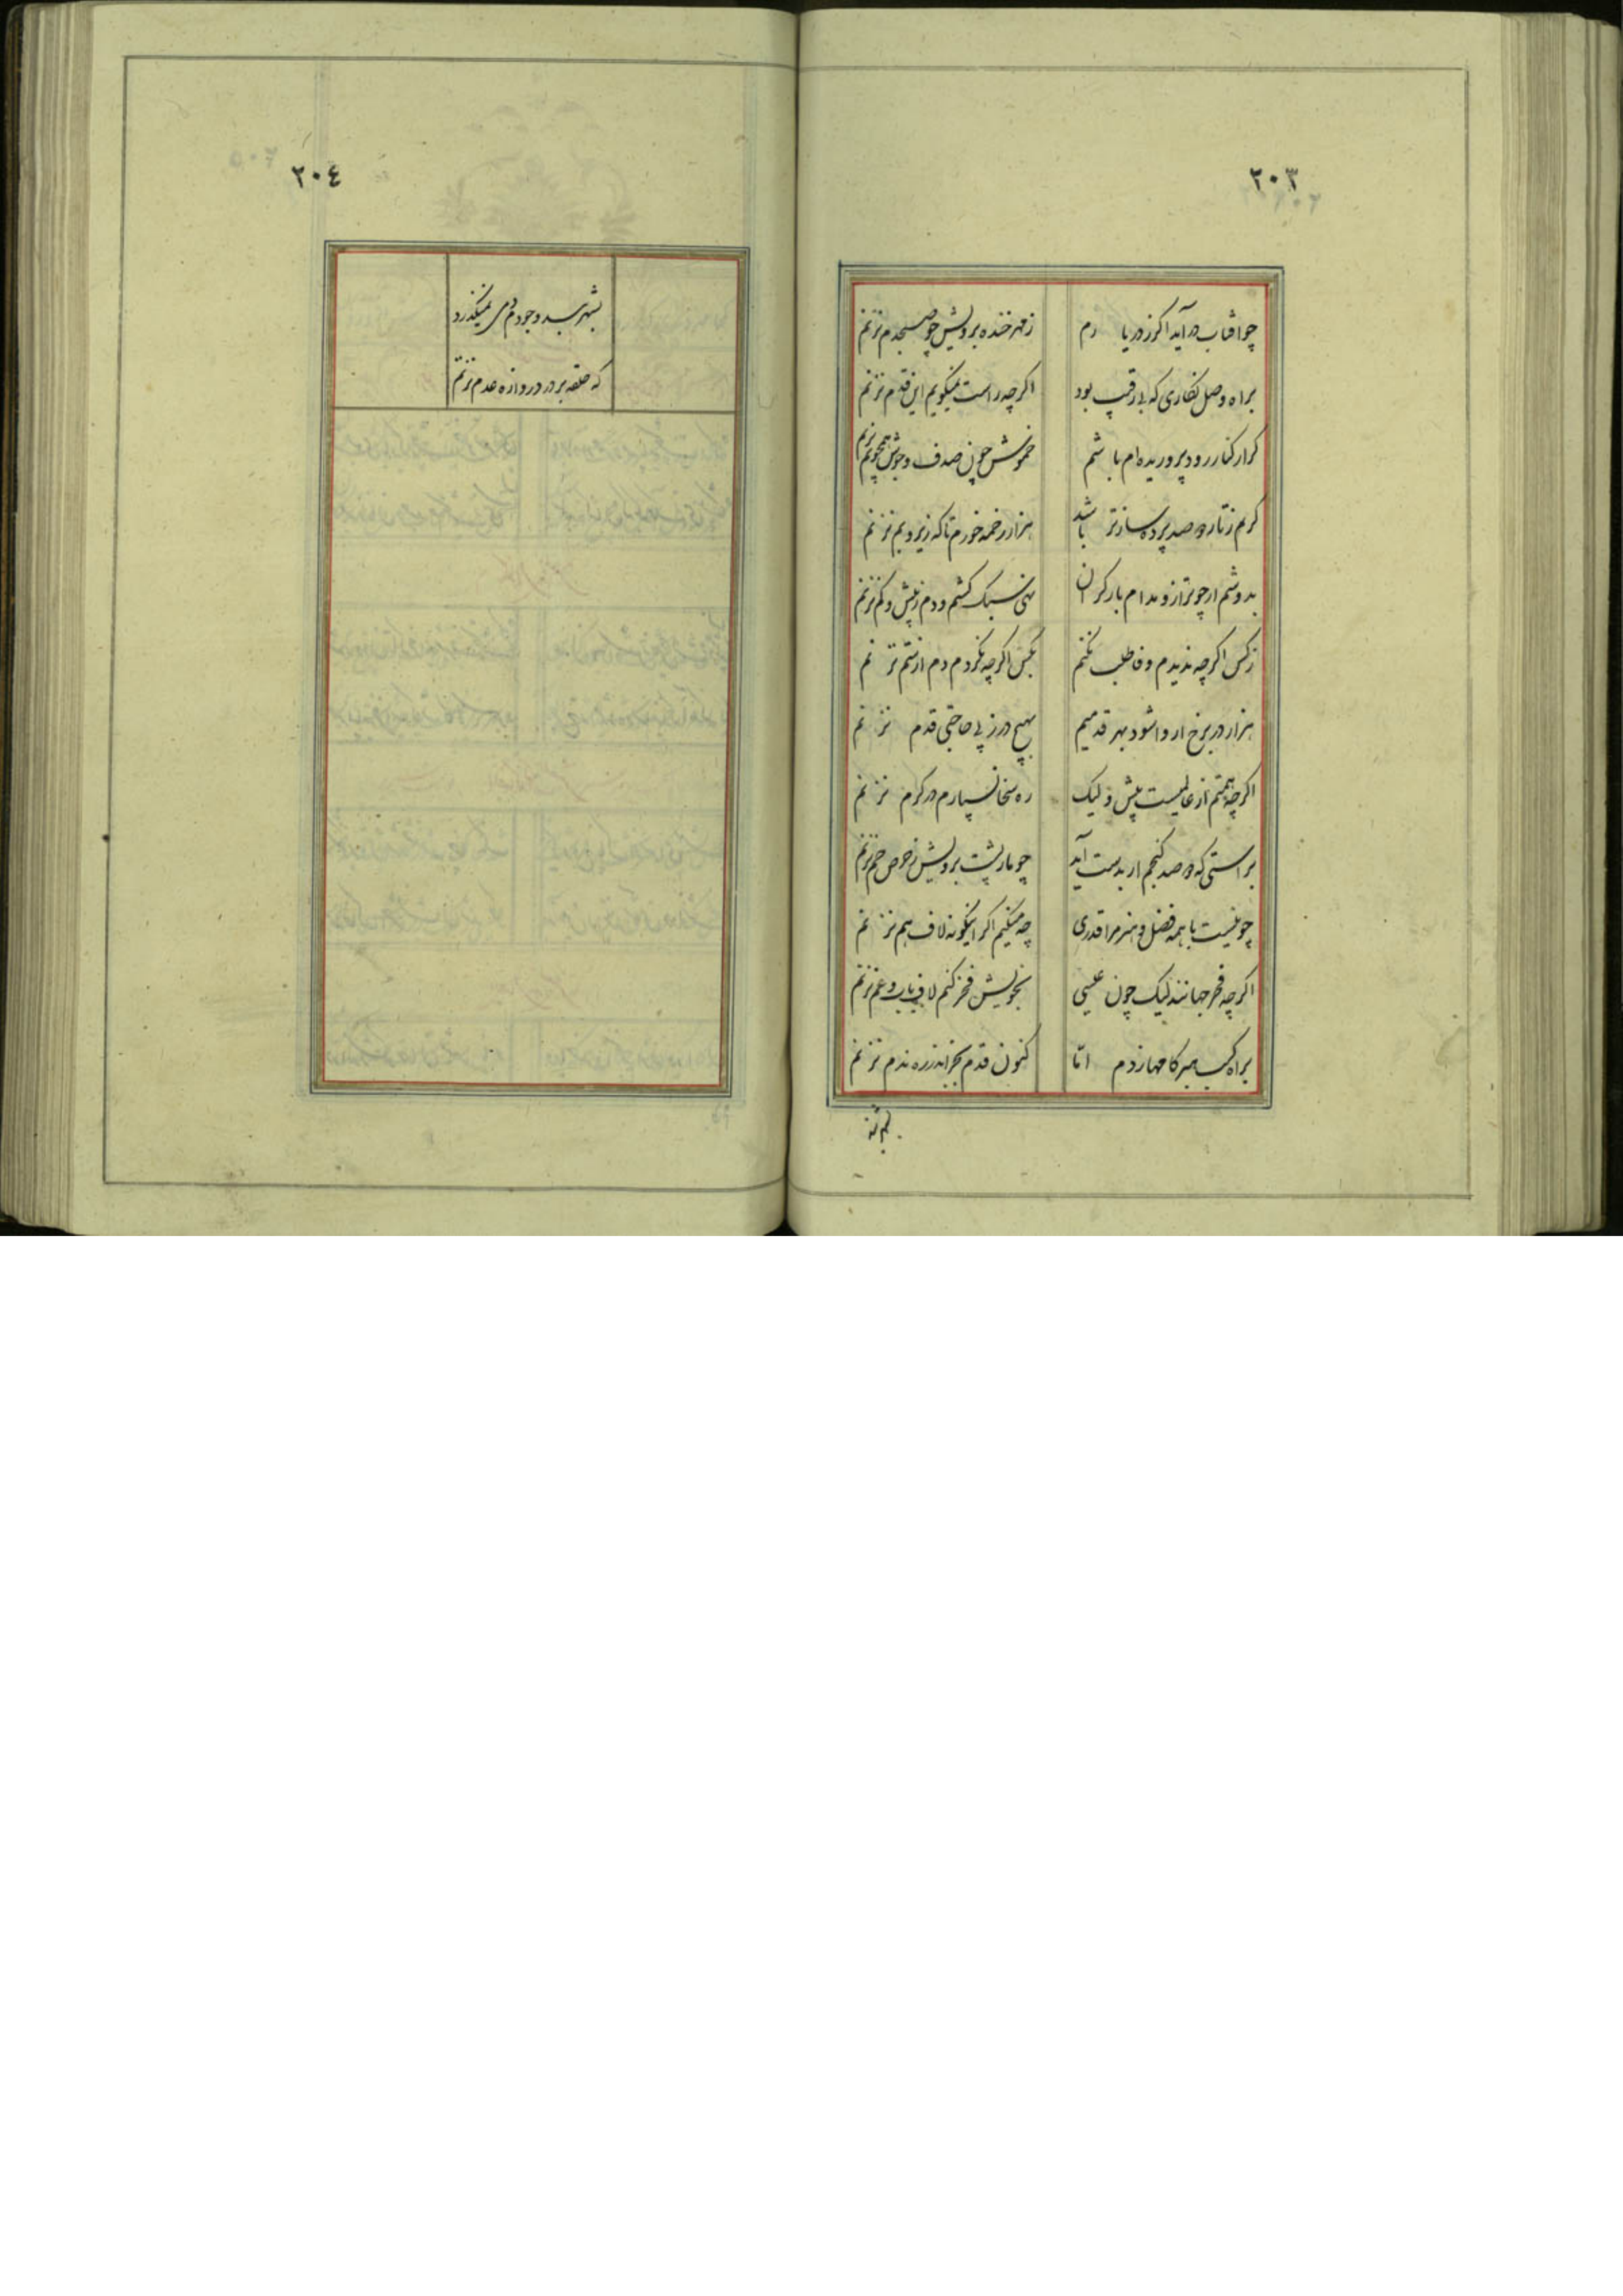 ٢٠٣
چو افتاب در آید اگر ز در یا رم
ز مهر خنده برویش چو صبحدم نزنم
براه وصل نگاری که بی رقیب بود
اگرچه راست نمیگویم این قدم نزنم
گر از کنار رود پروریده ام باشم
خموش چون صدف و جوش همچو یم نزنم
گرم ز تار دو صد پرده ساز تر باشد
هزار زخمه خورم تا که زیر و بم نزنم
بدوشم ار چو ترازو مدام بار گران
نهی سبک کشم و دم ز بیش و کم نزنم
ز کس اگرچه ندیدم وفا طلب نکنم
بکس اگرچه نکردم دم از ستم نزنم
هزار در برخ ار وا شود بهر قدمیم
بهیچ در ز پی حاجتی قدم نزنم
اگرچه همتم از عالمیست بیش ولیک
ره سخا نسپارم در کرم نزنم
براستی که دو صد گنجم ار بدست آید
چو مار پشت برویش ز حرص خم نزنم
چو نیست با همه فضل و هنر مرا قدری
چه میکنم اگر اینگونه لاف هم نزنم
اگرچه فخر جهانند لیک چون عیسی
بخویش فخر کنم لاف باب و عم نزنم
براه کسب هنر گامها زدم اما
کنون قدم بجز اندر ره ندم نزنم
٢٠٤
بشهربند وجودم دمی نمیگذرد
که حلقه بر در دروازه عدم نزنم